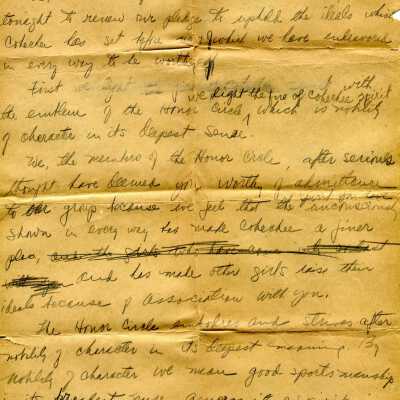 tonight to renew our pledge to uphold the ideals which
Cohechee has set which we have endeavored
in every way to be worthy of
First we light with
we light the fire of Cohechee spirit
the emblem of the Honor Circle, which is nobility
of character in its deepest sense.
We, the members of the Honor Circle, after serious
thought have deemed you worthy of
to our group because we feel that the unconsciously
shown in every way has made Cohechee a finer
place, and the girls who have come
and has made other girls raise their
ideals because of association with you.
The Honor Circle embodies and strives after
nobility of character in its deepest meaning. By
nobility of character we mean good sportsmanship
in its broadest sense